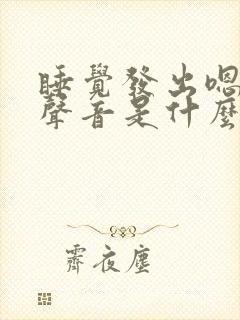 睡覺發出嗯
聲音是什麼
霽夜塵